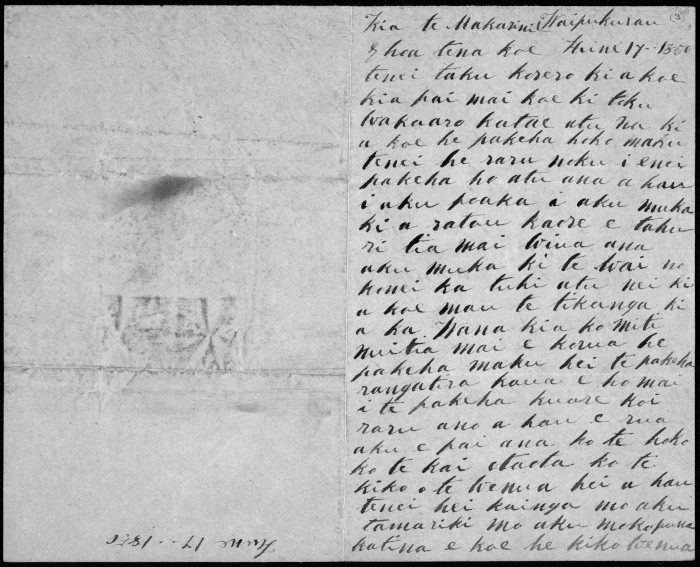 3
Kia te Makarini Waipukurau
E hoa tena koe Hune 17-1850
tenei taku korero ki a koe
kia pai mai koe ki toku
wakaaro ka tae atu na ki
a koe he pakeha hoko maku
tenei he raru noku i enei
pakeha ho atu ana a hau
i aku poaka i aku muka
ki a ratou kaore e taku
ri tia mai wiua ana
aku muka ki te wai no
konei ka tuhi atu nei ki
a koe mau te tikanga ki
a ka wana kia ko miti
muitia mai e korua he
pakeha maku hei te pakeha
rangatira kaua e ho mai
i te pakeha kuare koi
raru ano a hau e rua
aku e pai ana ko te hoko
ko te kai otaota ko te
kiko o te wenua hei a hau
tenei hei kainga mo aku
tamariki mo aku mokopuna
katina e koe he kiko wenua
June 17-1850